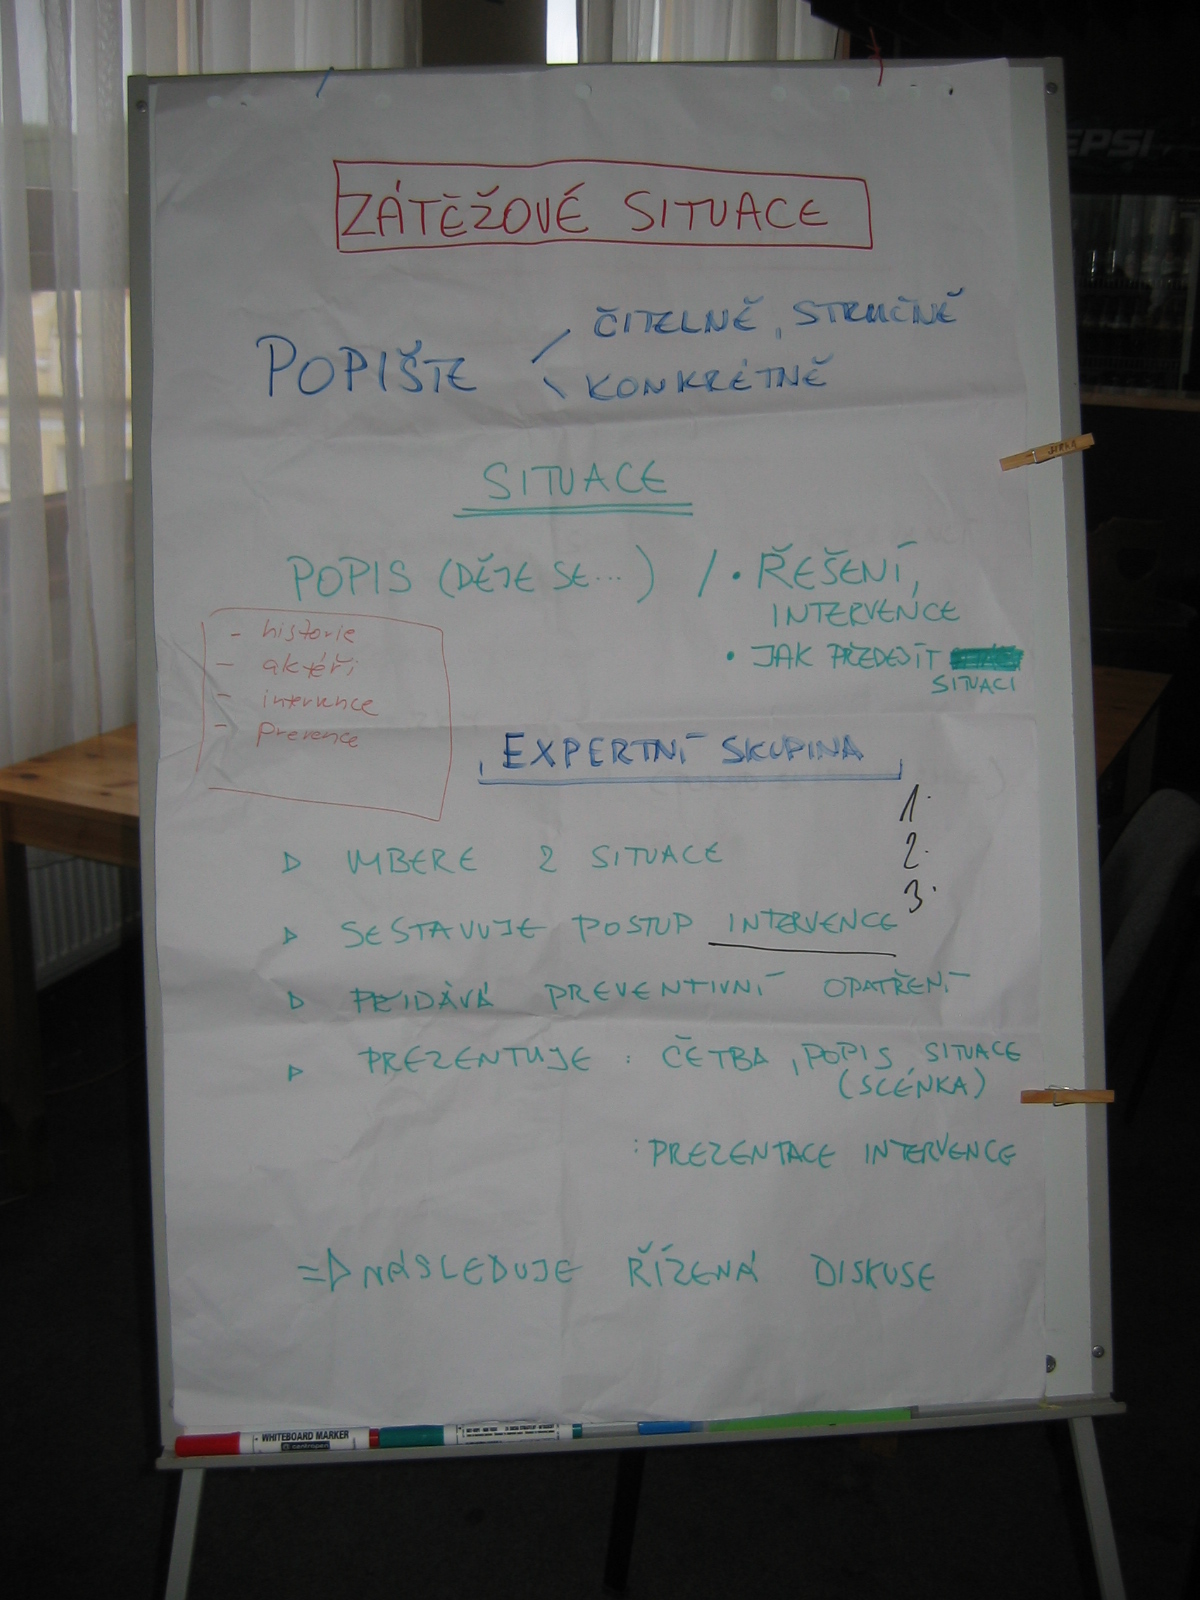 ZÁTĚŽOVÉ SITUACE
POPIŠTE
ČITELNĚ, STRUČNĚ
KONKRÉTNĚ
SITUACE
POPIS (DĚJE SE...) / • ŘEŠENÍ,
INTERVENCE
• JAK PŘEDEJÍT
SITUACI
- historie
- aktéři
- intervence
- prevence
EXPERTNÍ SKUPINA
1.
2.
3.
▷ VYBERE 2 SITUACE
▷ SESTAVUJE POSTUP INTERVENCE
▷ PŘIDÁVÁ PREVENTIVNÍ OPATŘENÍ
▷ PREZENTUJE : ČETBA, POPIS SITUACE
(SCÉNKA)
: PREZENTACE INTERVENCE
=▷ NÁSLEDUJE ŘÍZENÁ DISKUSE
WHITEBOARD MARKER
centropen
EPSI